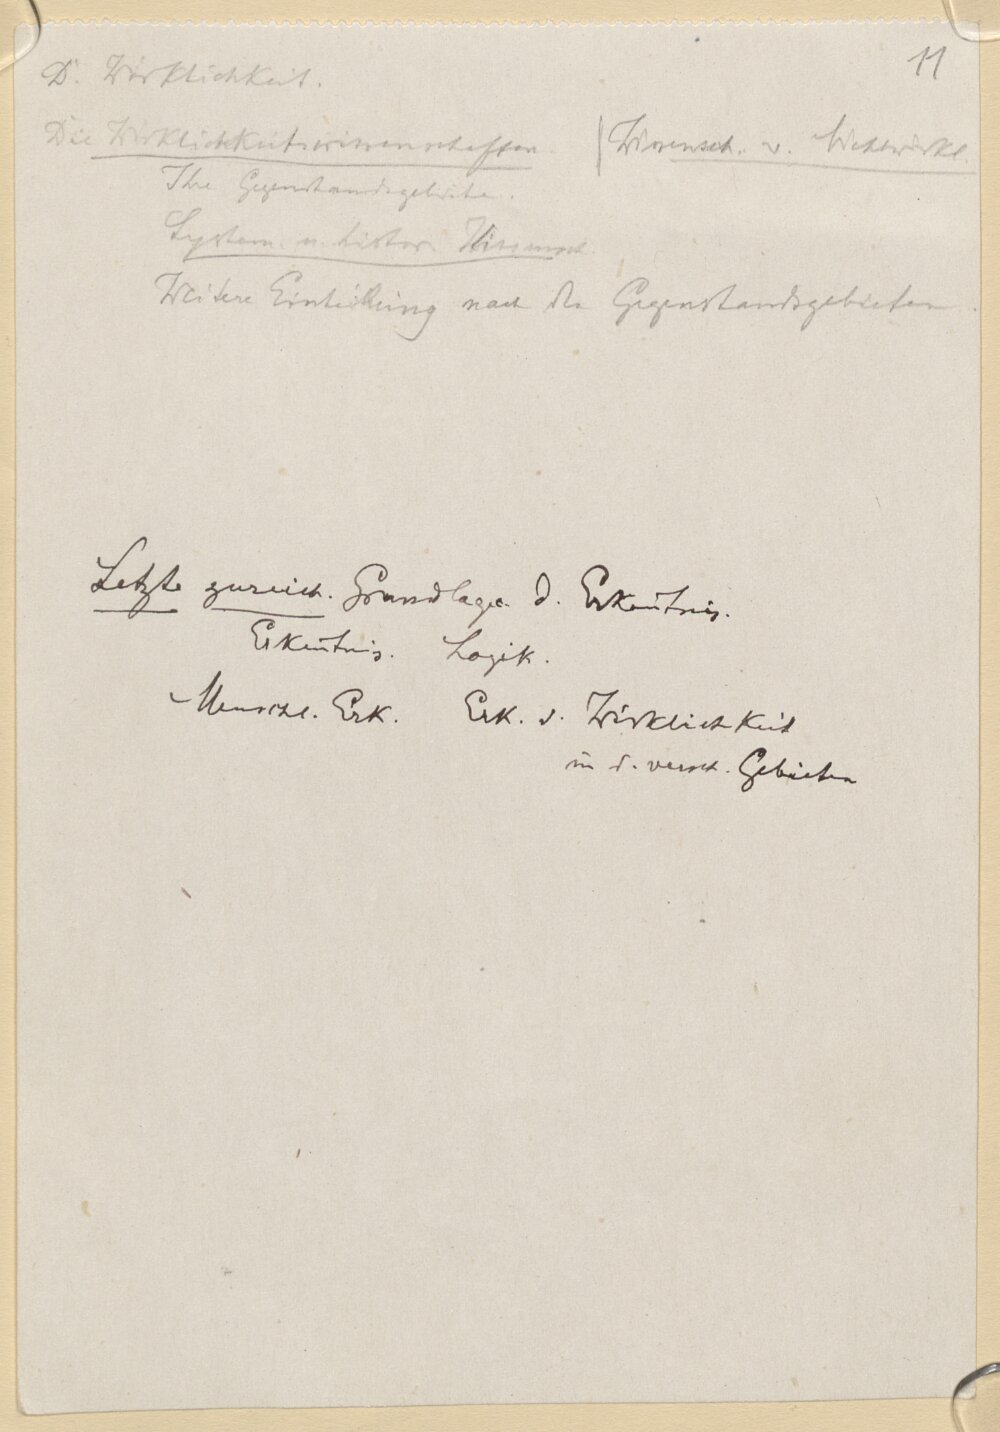 11
D. Wirklichkeit.
Die Wirklichkeitswissenschaften | Wissensch. v. Nichtwirkl.
Ihre Gegenstandsgebiete.
System. u. histor. Wissensch.
Weitere Einteilung nach den Gegenstandsgebieten.
Letzte zureich. Grundlage d. Erkentnis.
Erkentnis. Logik.
Menschl. Erk. Erk. d. Wirklichkeit
in d. versch. Gebieten